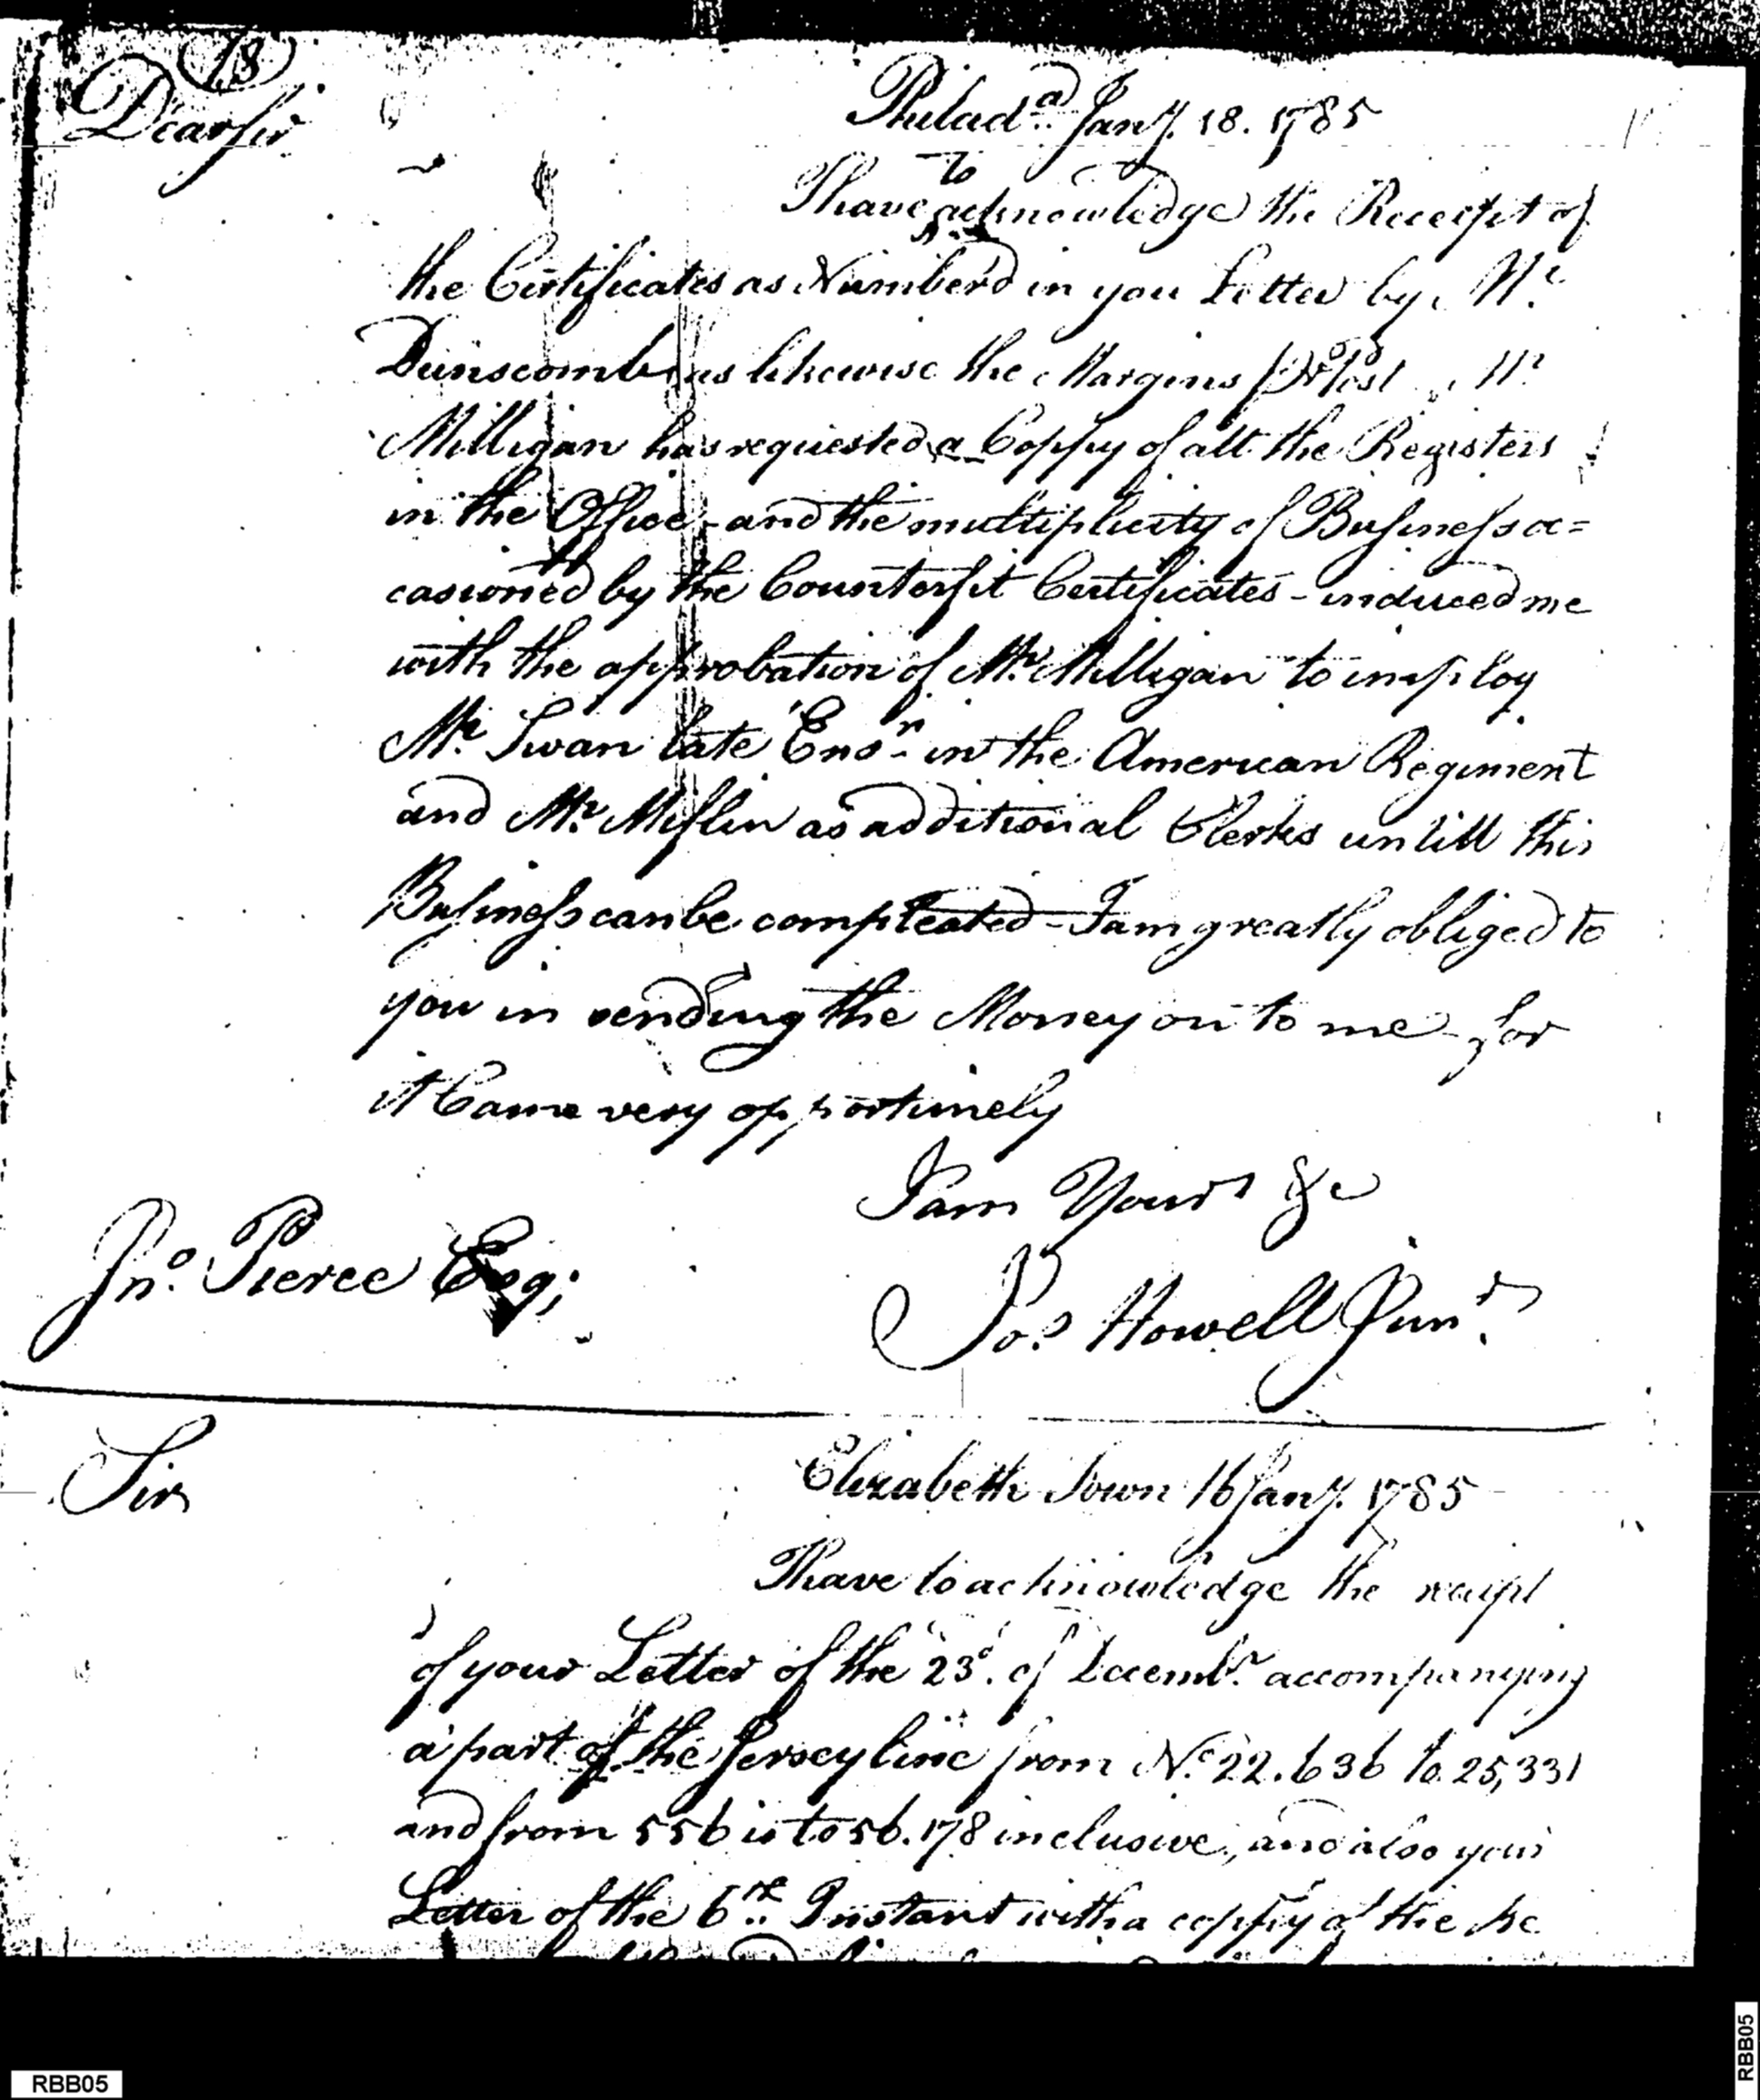 18
Dear Sir
Philad.ᵃ Jany. 18. 1785
to
I have acknowledge the Receipt of
the Certificates as Number'd in you Letter by Mʳ.
Dunscomb as likewise the Margins Post Mʳ
Milligan has requested a Coppy of all the Registers
in the Office - and the multiplicity of Business oc=
casioned by the Counterfit Certificates - induced me
with the approbation of Mʳ. Milligan to imploy
Mʳ. Swan late Ensⁿ. in the American Regiment
and Mʳ. Miflin as additional Clerks untill this
Business can be compleated - I am greatly obliged to
you in sending the Money on to me for
it Came very opportunely
I am Yours &c
Jnº. Pierce Esq;
Jos Howell Junʳ.
Sir
Elizabeth Town 16 Jany. 1785
I have to acknowledge the receipt
of your Letter of the 23ᵈ. of Decembʳ. accompanying
a part of the Jersey line from Nº. 22.636 to 25,331
and from to 56.178 inclusive, and also your
Letter of the 6ᵗʰ. Instant with a coppy of the
RBB05
RBB05